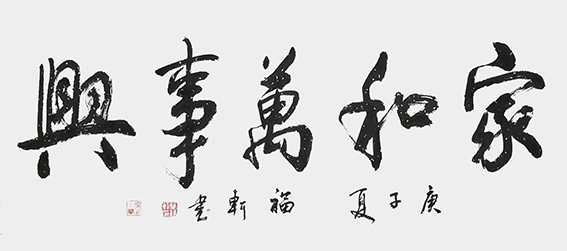 家和萬事興
庚子夏 福軒書